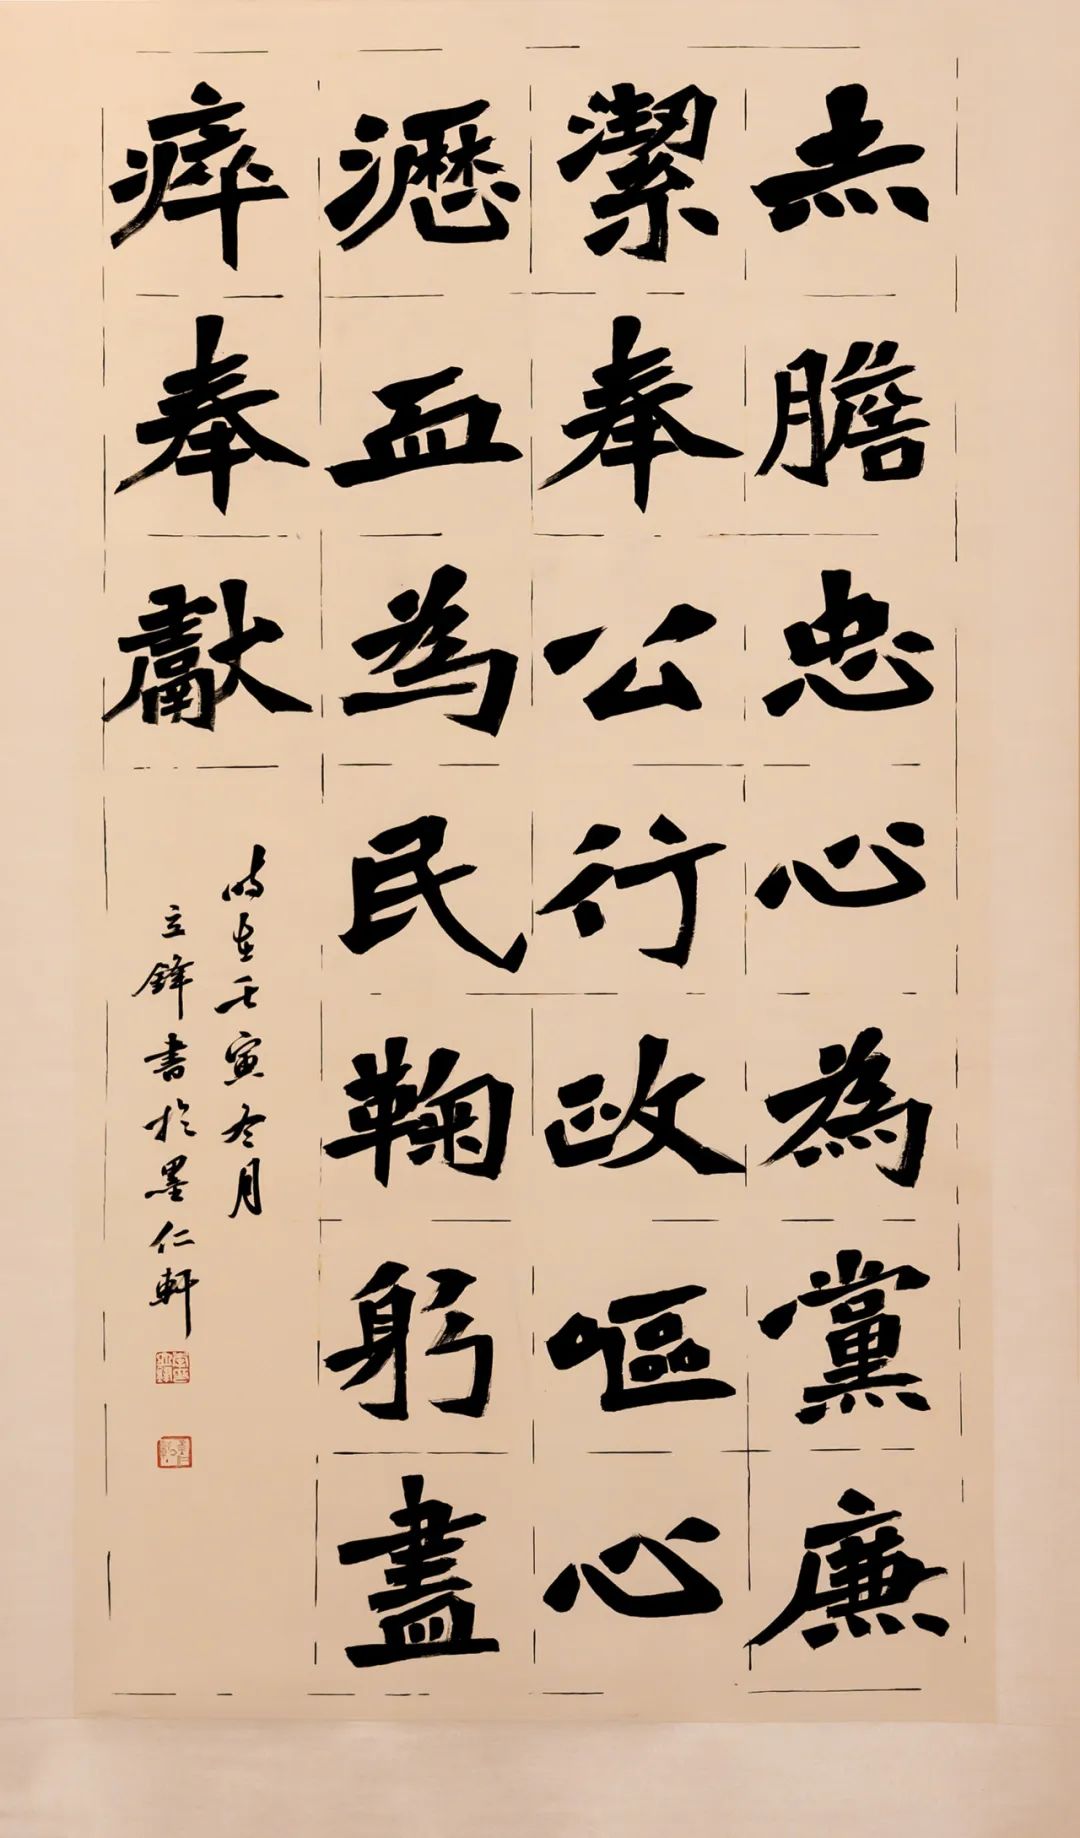 赤膽忠心為黨廉
潔奉公行政嘔心
瀝血為民鞠躬盡
瘁奉獻
時在壬寅冬月
立鋒書於墨仁軒